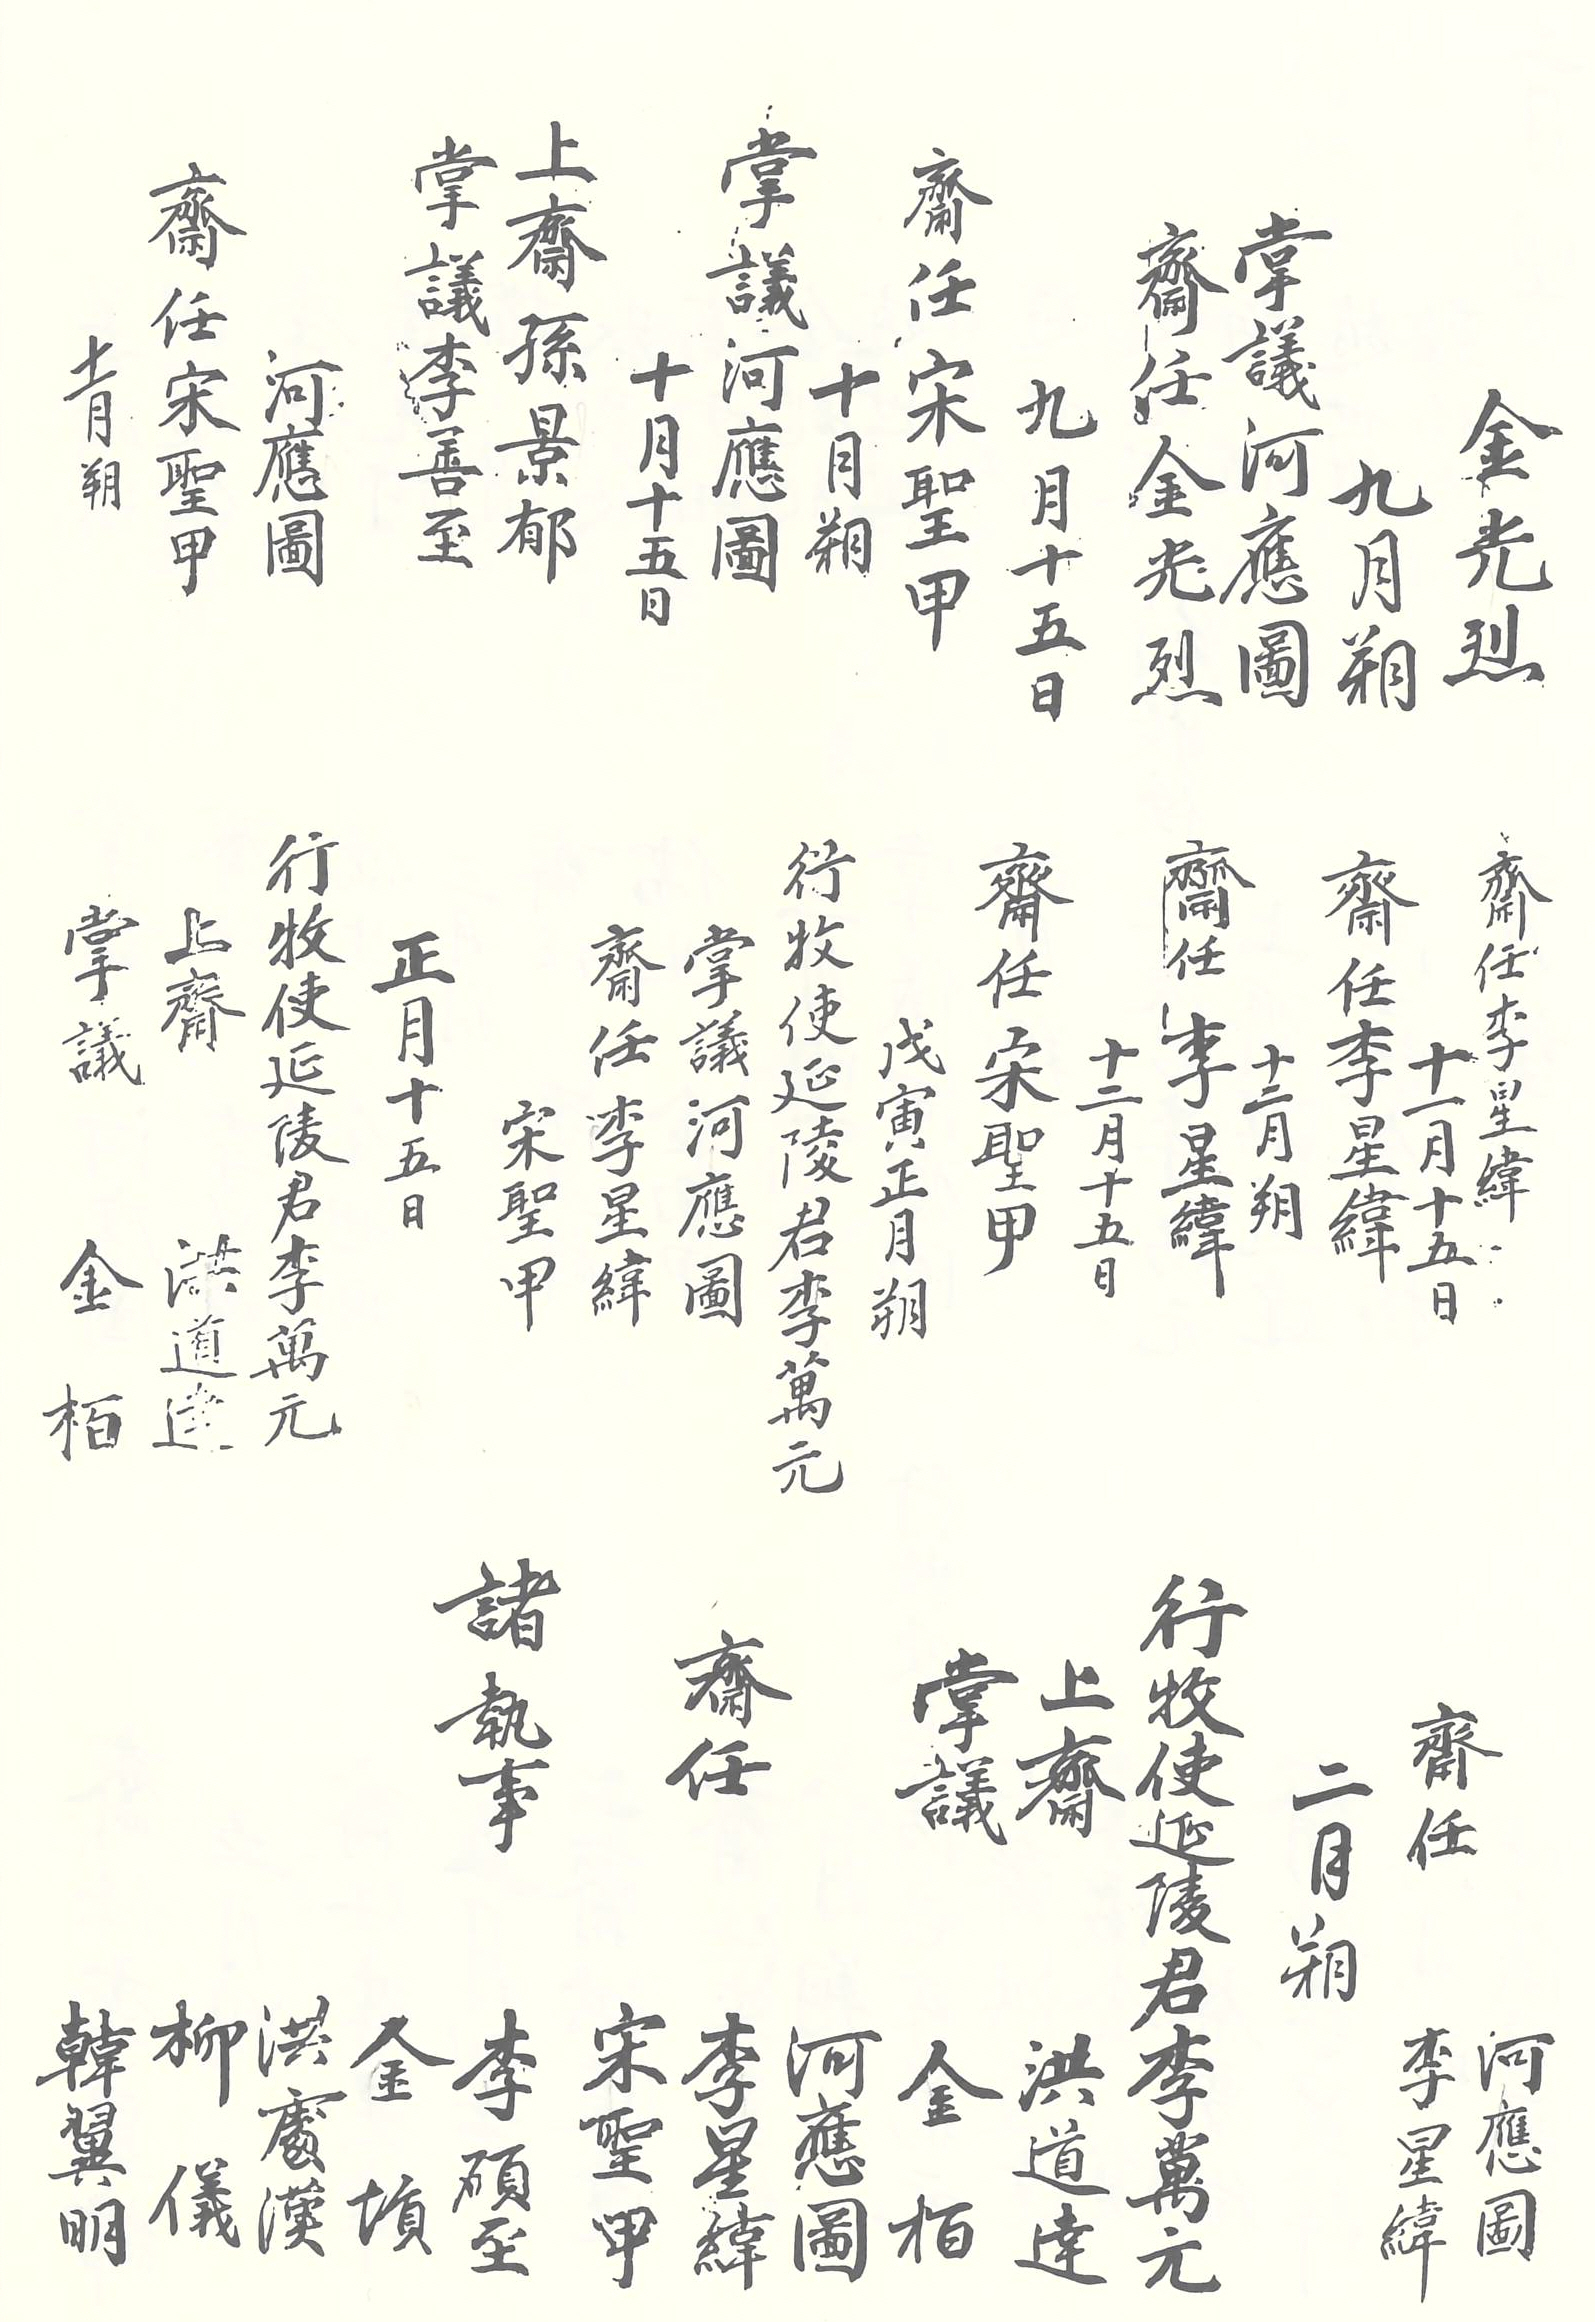 金光烈
九月朔
掌議河應圖
齋任金光烈
九月十五日
齋任宋聖甲
十月朔
掌議河應圖
十月十五日
上齋孫景郁
掌議李善至
河應圖
齋任宋聖甲
十一月朔
齋任李星緯
十一月十五日
齋任李星緯
十二月朔
齋任李星緯
十二月十五日
齋任宋聖甲
戊寅正月朔
行牧使延陵君李萬元
掌議河應圖
齋任李星緯
宋聖甲
正月十五日
行牧使延陵君李萬元
上齋 洪道達
掌議 金栢
河應圖
齋任 李星緯
二月朔
行牧使延陵君李萬元
上齋 洪道達
掌議 金栢
河應圖
齋任 李星緯
宋聖甲
諸執事 李碩至
金墳
洪處漢
柳儀
韓翼明